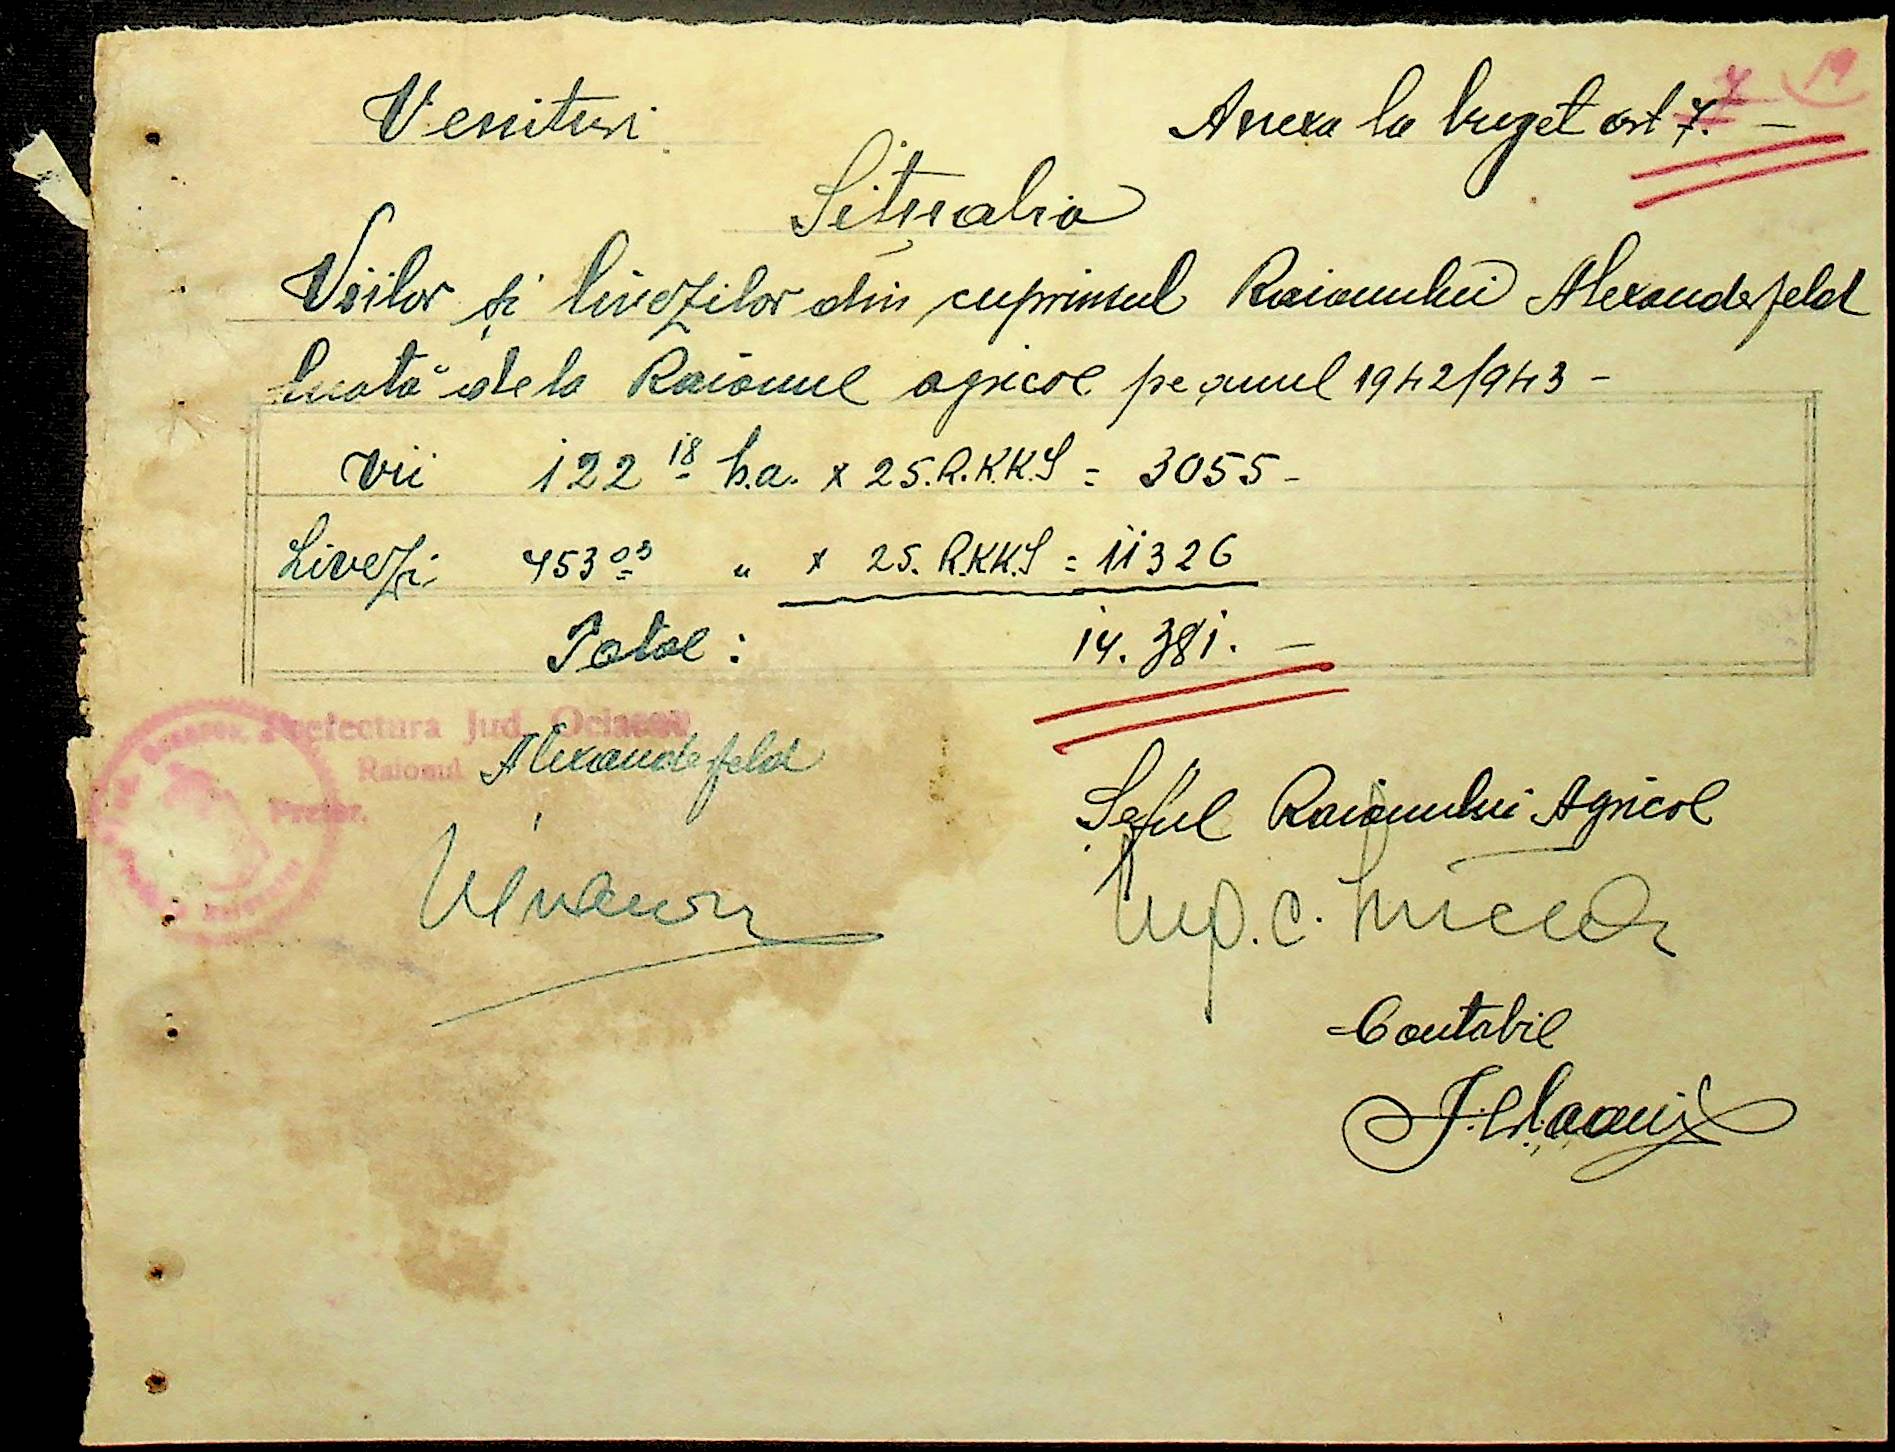 19
7
Venituri
Anexa la buget art 7. –
Situatia
Viilor și livezilor din cuprinsul Raionului Alexanderfeld
luată de la Raionul agricol pe anul 1942/943 –
Vii 122 18 h.a. x 25.R.K.K.S = 3055 –
Livezi 453 03 " x 25. R.K.K.S = 11326
Total: 14.381. –
Prefectura Jud. Ociacov
Raionul Alexandefeld
Pretor,
Șeful Raionului Agricol
Contabil